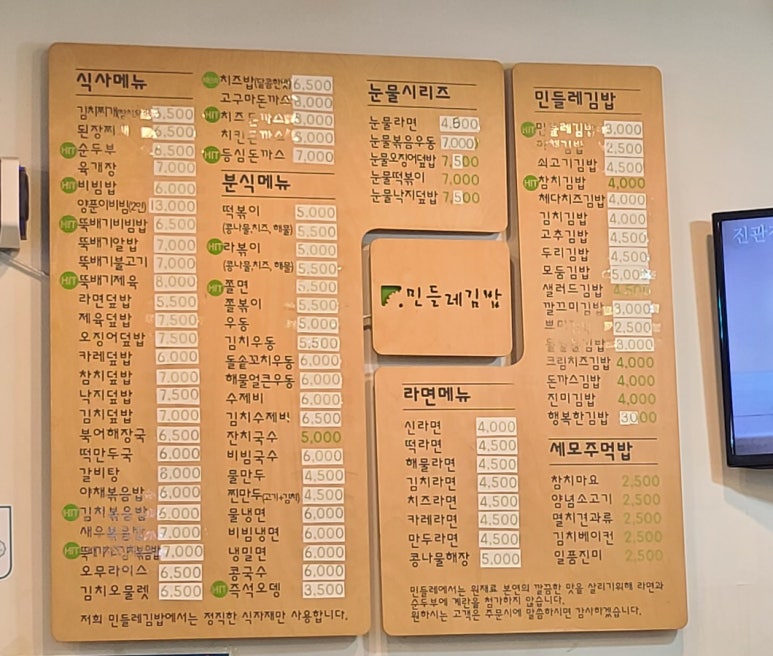 식사메뉴
김치찌개(참치외) 6,500
된장찌개 6,500
HIT 순두부 6,500
육개장 7,000
HIT 비빔밥 6,000
양푼이비빔(2인) 13,000
HIT 뚝배기비빔밥 6,500
뚝배기알밥 7,000
뚝배기불고기 7,000
HIT 뚝배기제육 8,000
라면덮밥 5,500
제육덮밥 7,500
오징어덮밥 7,500
카레덮밥 6,000
참치덮밥 7,000
낙지덮밥 7,500
김치덮밥 7,000
북어해장국 6,500
떡만두국 6,000
갈비탕 8,000
야채볶음밥 6,000
HIT 김치볶음밥 6,000
새우볶음밥 7,000
HIT 7,000
오무라이스 6,500
김치오믈렛 6,500
치즈밥(달콤한맛) 6,500
고구마돈까스 8,000
HIT 치즈돈까스 8,000
치킨돈까스 8,000
HIT 등심돈까스 7,000
분식메뉴
떡볶이 5,000
(콩나물,치즈,해물) 5,500
HIT 라볶이 5,000
(콩나물,치즈,해물) 5,500
HIT 쫄면 5,500
쫄볶이 5,500
우동 5,000
김치우동 5,500
돌솥꼬치우동 6,000
해물얼큰우동 6,000
수제비 6,000
김치수제비 6,500
잔치국수 5,000
비빔국수 6,000
물만두 4,500
찐만두(고기+김치) 4,500
물냉면 6,000
비빔냉면 6,000
냉밀면 6,000
콩국수 6,000
HIT 즉석오뎅 3,500
저희 민들레김밥에서는 정직한 식자재만 사용합니다.
눈물시리즈
눈물라면 4,800
눈물볶음우동 7,000
눈물오징어덮밥 7,500
눈물떡볶이 7,000
눈물낙지덮밥 7,500
민들레김밥
라면메뉴
신라면 4,000
떡라면 4,500
해물라면 4,500
김치라면 4,500
치즈라면 4,500
카레라면 4,500
만두라면 4,500
콩나물해장 5,000
민들레김밥
HIT 민들레김밥 3,000
야채김밥 4,500
쇠고기김밥 4,500
HIT 참치김밥 4,000
체다치즈김밥 4,500
김치김밥 4,000
고추김밥 4,500
두리김밥 4,500
모둠김밥 5,000
샐러드김밥 4,500
깔끄미김밥 3,000
2,500
3,000
크림치즈김밥 4,000
돈까스김밥 4,000
진미김밥 4,000
행복한김밥 3,000
세모주먹밥
참치마요 2,500
양념소고기 2,500
멸치견과류 2,500
김치베이컨 2,500
일품진미 2,500
민들레에서는 원재료 본연의 깔끔한 맛을 살리기위해 라면과
순두부에 계란을 첨가하지 않습니다.
원하시는 고객은 주문시에 말씀하시면 감사하겠습니다.
진관